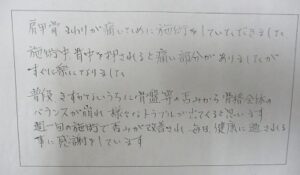 肩甲骨まわりが痛いために施術をしていただきました
施術中背中を押されると痛い部分がありましたが
すぐに楽になりました
普段きずかないうちに骨盤等の歪みから骨格全体の
バランスが崩れ様々なトラブルが出てくると思います
週一回の施術で歪みが改善され、毎日、健康に過される
事に感謝をしています